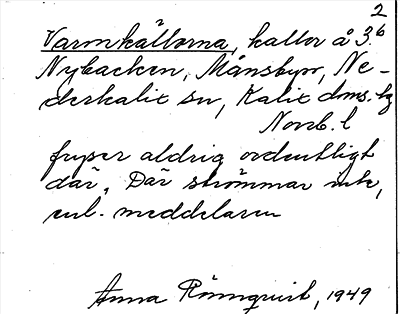 2
Varmkällorna, kallor å 3.6
Nybacken, Månsbyn, Ne-
derkalix sn, Kalix dms. hg
Norrb. l
fryser aldrig ordentligt
där. Där strömmar inte,
enl. meddelaren
Anna Rönnqvist, 1949